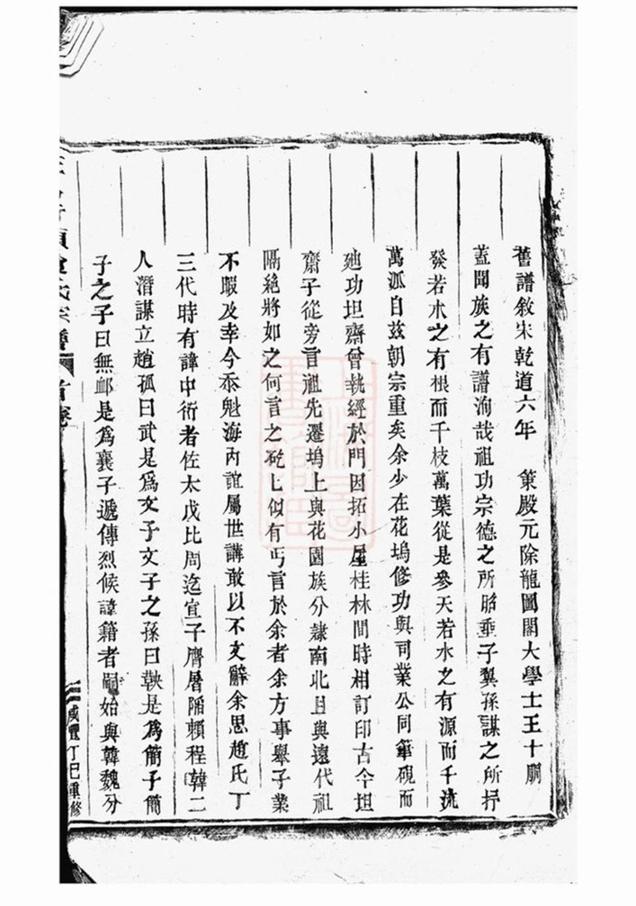 舊譜敘宋乾道六年　策殿元除龍圖閣大學士王十朋
蓋聞族之有譜洵哉祖功宗德之所昭垂子翼孫謀之所抒
發若木之有根而千枝萬葉從是參天若水之有源而千流
萬派自茲朝宗重矣余少在花塢修功與司業公同筆硯而
廸功坦齋曾執經於門因拓小屋桂林間時相訂印古今坦
齋子從旁言祖先遷塢上與花園族分隸南北且與遠代祖
隔絶將如之何言之矻乚似有丐言於余者余方事舉子業
不暇及幸今忝魁海內誼屬世講敢以不文辭余思趙氏丁
三代時有諱中衍者佐太戊比周迄宣子膺屠隋賴程韓二
人潛謀立趙孤曰武是爲文子文子之孫曰鞅是爲簡子簡
子之子曰無卹是爲襄子遞傳烈候諱籍者嗣始與韓魏分
氏宗譜
首卷
咸豐丁巳重修